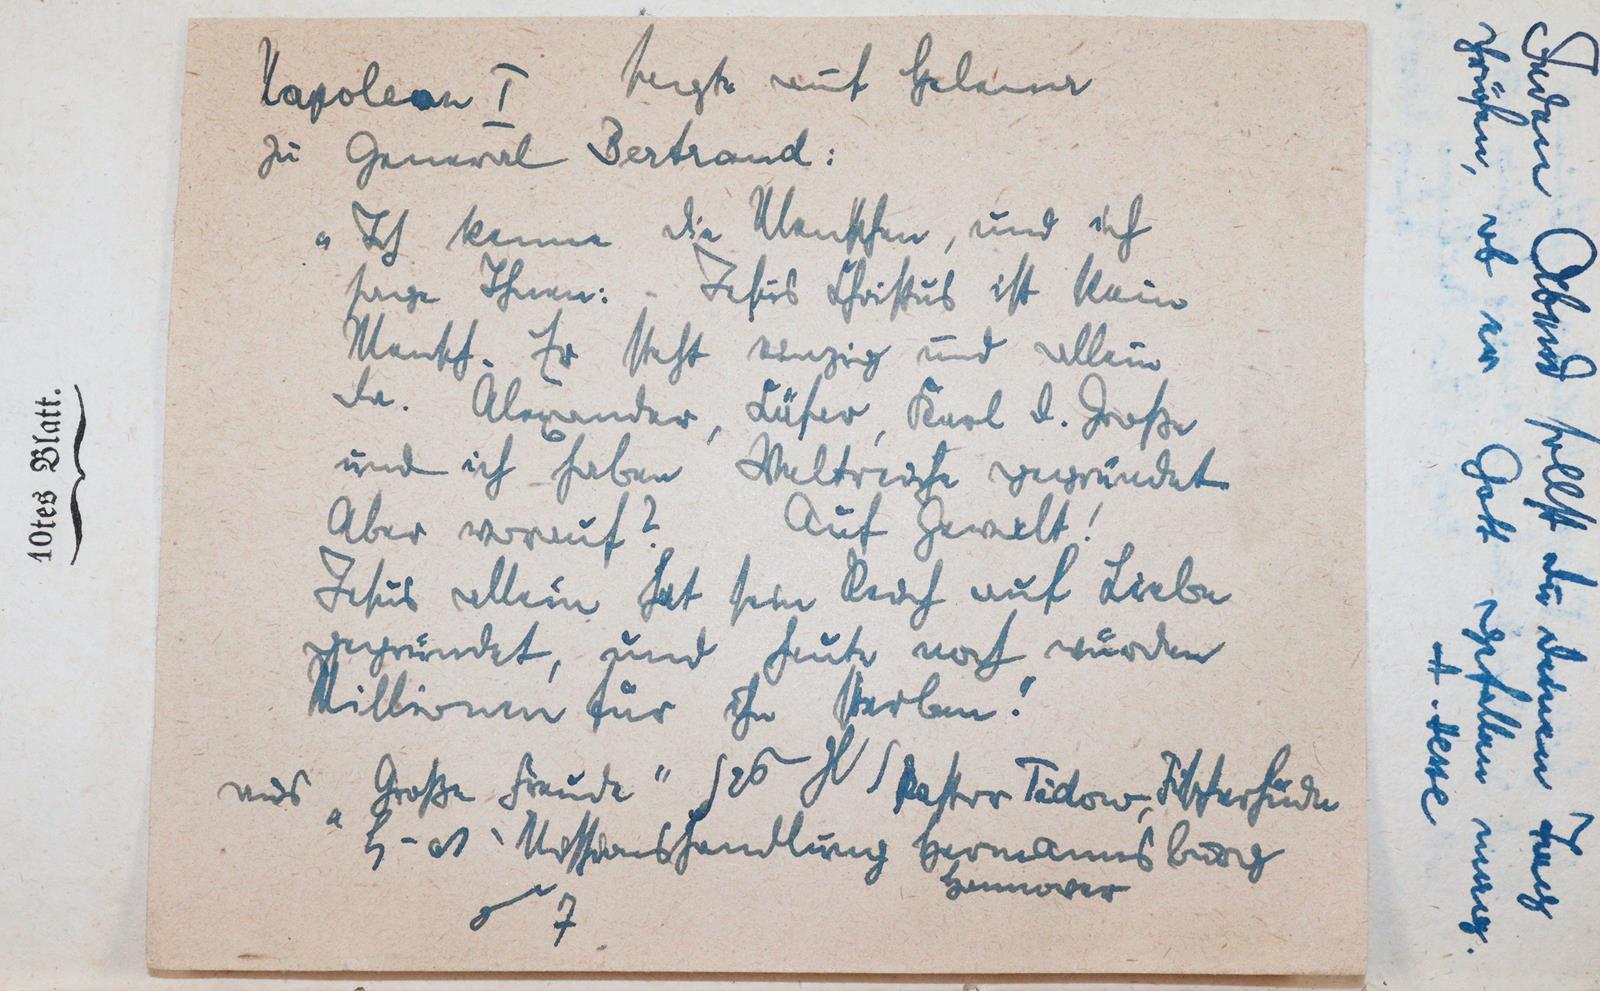 10tes Blatt.
Napoleon I sagte auf Helena
zu General Bertrand:
„Ich kenne die Menschen, und ich
sage Ihnen: - Jesus Christus ist kein
Mensch. Er steht einzig und allein
da. Alexander, Cäsar, Karl d. Große
und ich haben Weltreiche gegründet.
Aber worauf? Auf Gewalt!
Jesus allein hat sein Reich auf Liebe
gegründet, und heute noch würden
Millionen für ihn sterben."
aus „Große Freude" Pastor Tidow, Fischerhude
Missionshandlung Hermannsburg
Hannover
7
Jeden Abend sollst du deinen Tag
prüfen, ob er Gott gefallen mag.